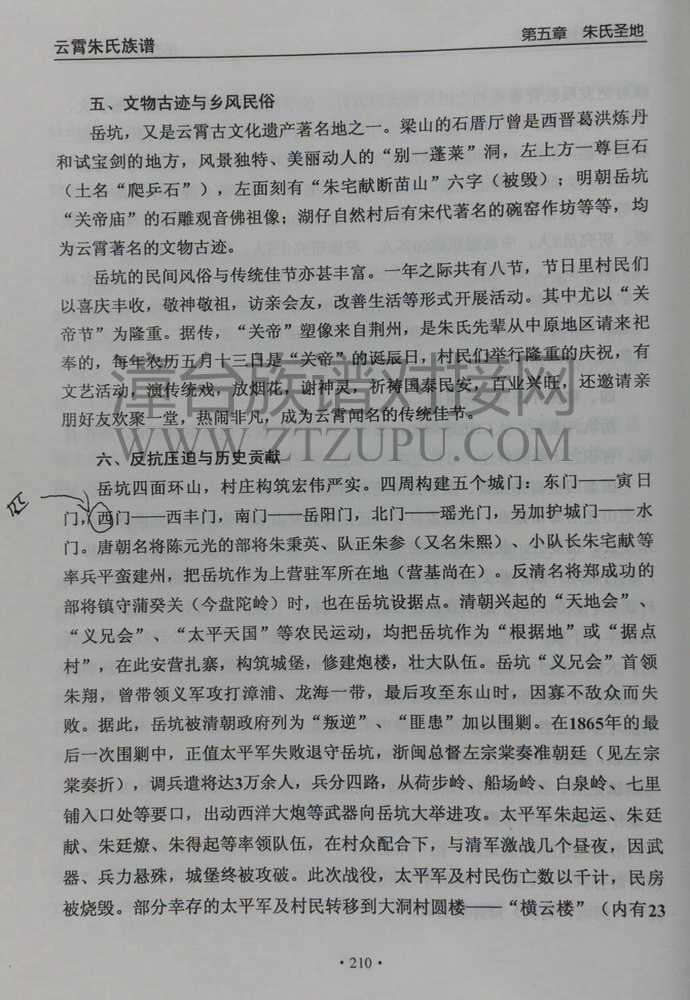 云霄朱氏族谱
第五章 朱氏圣地
五、文物古迹与乡风民俗
岳坑，又是云霄古文化遗产著名地之一。梁山的石厝厅曾是西晋葛洪炼丹
和试宝剑的地方，风景独特、美丽动人的“别一蓬莱”洞，左上方一尊巨石
（土名“爬乒石”），左面刻有“朱宅献断苗山”六字（被毁）；明朝岳坑
“关帝庙”的石雕观音佛祖像；湖仔自然村后有宋代著名的碗窑作坊等等，均
为云霄著名的文物古迹。
岳坑的民间风俗与传统佳节亦甚丰富。一年之际共有八节，节日里村民们
以喜庆丰收，敬神敬祖，访亲会友，改善生活等形式开展活动。其中尤以“关
帝节”为隆重。据传，“关帝”塑像来自荆州，是朱氏先辈从中原地区请来祀
奉的，每年农历五月十三日是“关帝”的诞辰日，村民们举行隆重的庆祝，有
文艺活动，演传统戏，放烟花，谢神灵，祈祷国泰民安，百业兴旺，还邀请亲
朋好友欢聚一堂，热闹非凡，成为云霄闻名的传统佳节。
漳台族谱对接网
WWW.ZTZUPU.COM
六、反抗压迫与历史贡献
岳坑四面环山，村庄构筑宏伟严实。四周构建五个城门：东门——寅日
门，西门——西丰门，南门——岳阳门，北门——瑶光门，另加护城门——水
门。唐朝名将陈元光的部将朱秉英、队正朱参（又名朱熙）、小队长朱宅献等
率兵平蛮建州，把岳坑作为上营驻军所在地（营基尚在）。反清名将郑成功的
部将镇守蒲葵关（今盘陀岭）时，也在岳坑设据点。清朝兴起的“天地会”、
“义兄会”、“太平天国”等农民运动，均把岳坑作为“根据地”或“据点
村”，在此安营扎寨，构筑城堡，修建炮楼，壮大队伍。岳坑“义兄会”首领
朱翔，曾带领义军攻打漳浦、龙海一带，最后攻至东山时，因寡不敌众而失
败。据此，岳坑被清朝政府列为“叛逆”、“匪患”加以围剿。在1865年的最
后一次围剿中，正值太平军失败退守岳坑，浙闽总督左宗棠奏准朝廷（见左宗
棠奏折），调兵遣将达3万余人，兵分四路，从荷步岭、船场岭、白泉岭、七里
铺入口处等要口，出动西洋大炮等武器向岳坑大举进攻。太平军朱起运、朱廷
献、朱廷燎、朱得起等率领队伍，在村众配合下，与清军激战几个昼夜，因武
器、兵力悬殊，城堡终被攻破。此次战役，太平军及村民伤亡数以千计，民房
被烧毁。部分幸存的太平军及村民转移到大洞村圆楼——“横云楼”（内有23
·210·